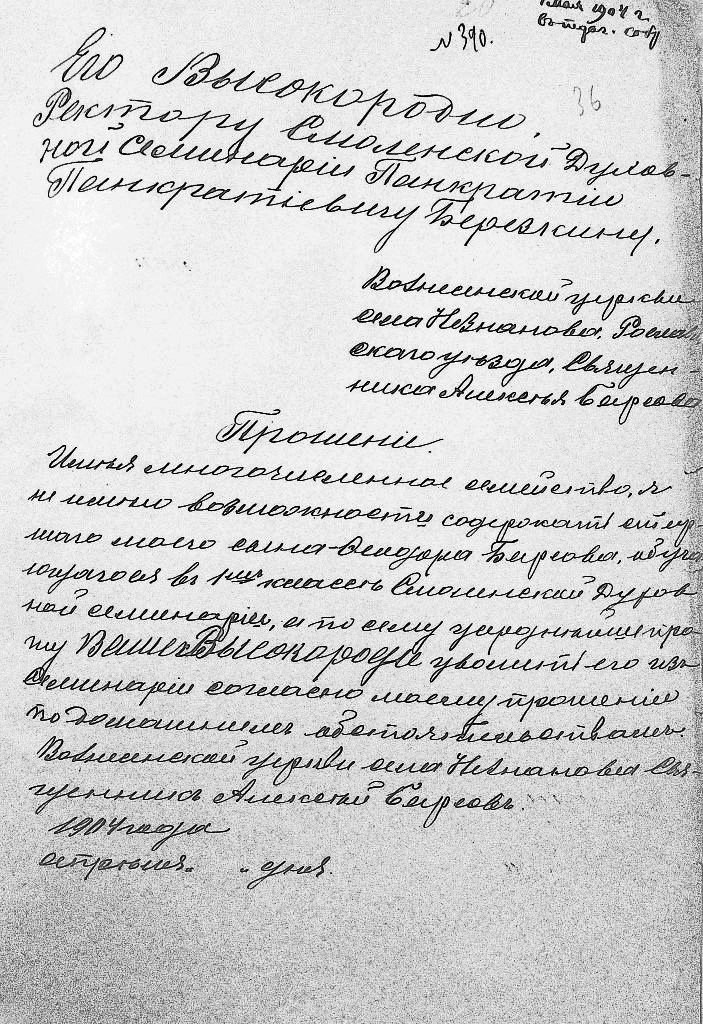 мая 1904 г.
въ педаг. собр
№ 390.
36
Его Высокородію,
Ректору Смоленской Духов-
ной Семинаріи Панкратію
Панкратіевичу Березкину.
Вознесенской церкви
села Незнанова, Рослав
скаго уѣзда, Священ-
ника Алексѣя Барсова
Прошеніе.
Имѣя многочисленное семейство, я
не имѣю возможности содержать стар-
шаго моего сына Ѳеодора Барсова, обуча
ющагося въ 1мъ классѣ Смоленской Духов
ной семинаріи, а по сему усерднѣйше про-
шу Ваше Высокородіе уволить его изъ
Семинаріи согласно моему прошенію
по домашнимъ обстоятельствамъ.
Вознесенской церкви села Незнанова Свя-
щенникъ Алексѣй Барсовъ.
1904 года
апрѣля „ „ дня.